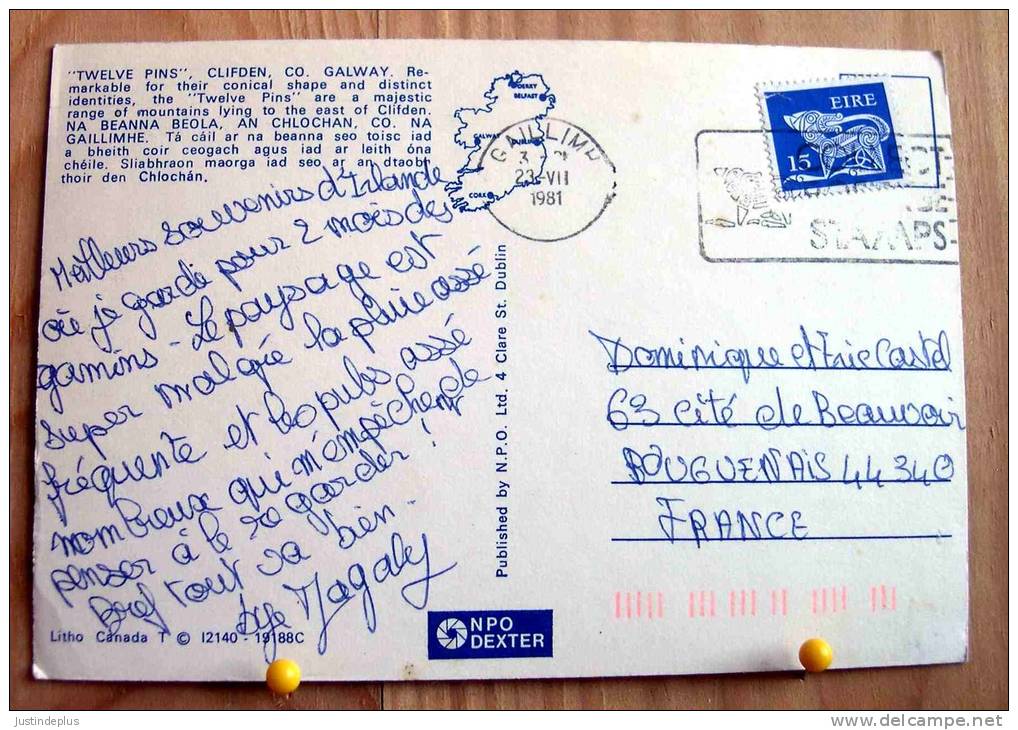 "TWELVE PINS", CLIFDEN, CO. GALWAY. Re-
markable for their conical shape and distinct
identities, the "Twelve Pins" are a majestic
range of mountains lying to the east of Clifden.
NA BEANNA BEOLA, AN CHLOCHAN, CO. NA
GAILLIMHE. Tá cáil ar na beanna seo toisc iad
a bheith coir ceogach agus iad ar leith óna
chéile. Sliabhraon maorga iad seo ar an dtaobh
thoir den Chlochán.
DERRY
BELFAST
GALWAY
CORK
GAILLIMH
23-VII
1981
EIRE
15
STAMPS-
Meilleurs souvenirs d'Irlande
où je garde pour 2 mois des
gamins - Le paysage est
super malgrée la pluie assé
fréquente et les pubs assé
nombreux qui m'empêchent de
penser à le regarder !
Bref tout va bien.
bye Magaly
Published by N.P.O. Ltd. 4 Clare St. Dublin
Dominique et Eric Castel
63 cité de Beauvoir
BOUGUENAIS 44340
FRANCE
Litho Canada T © I2140 - 19188C
NPO
DEXTER
justindeplus
www.delcampe.net